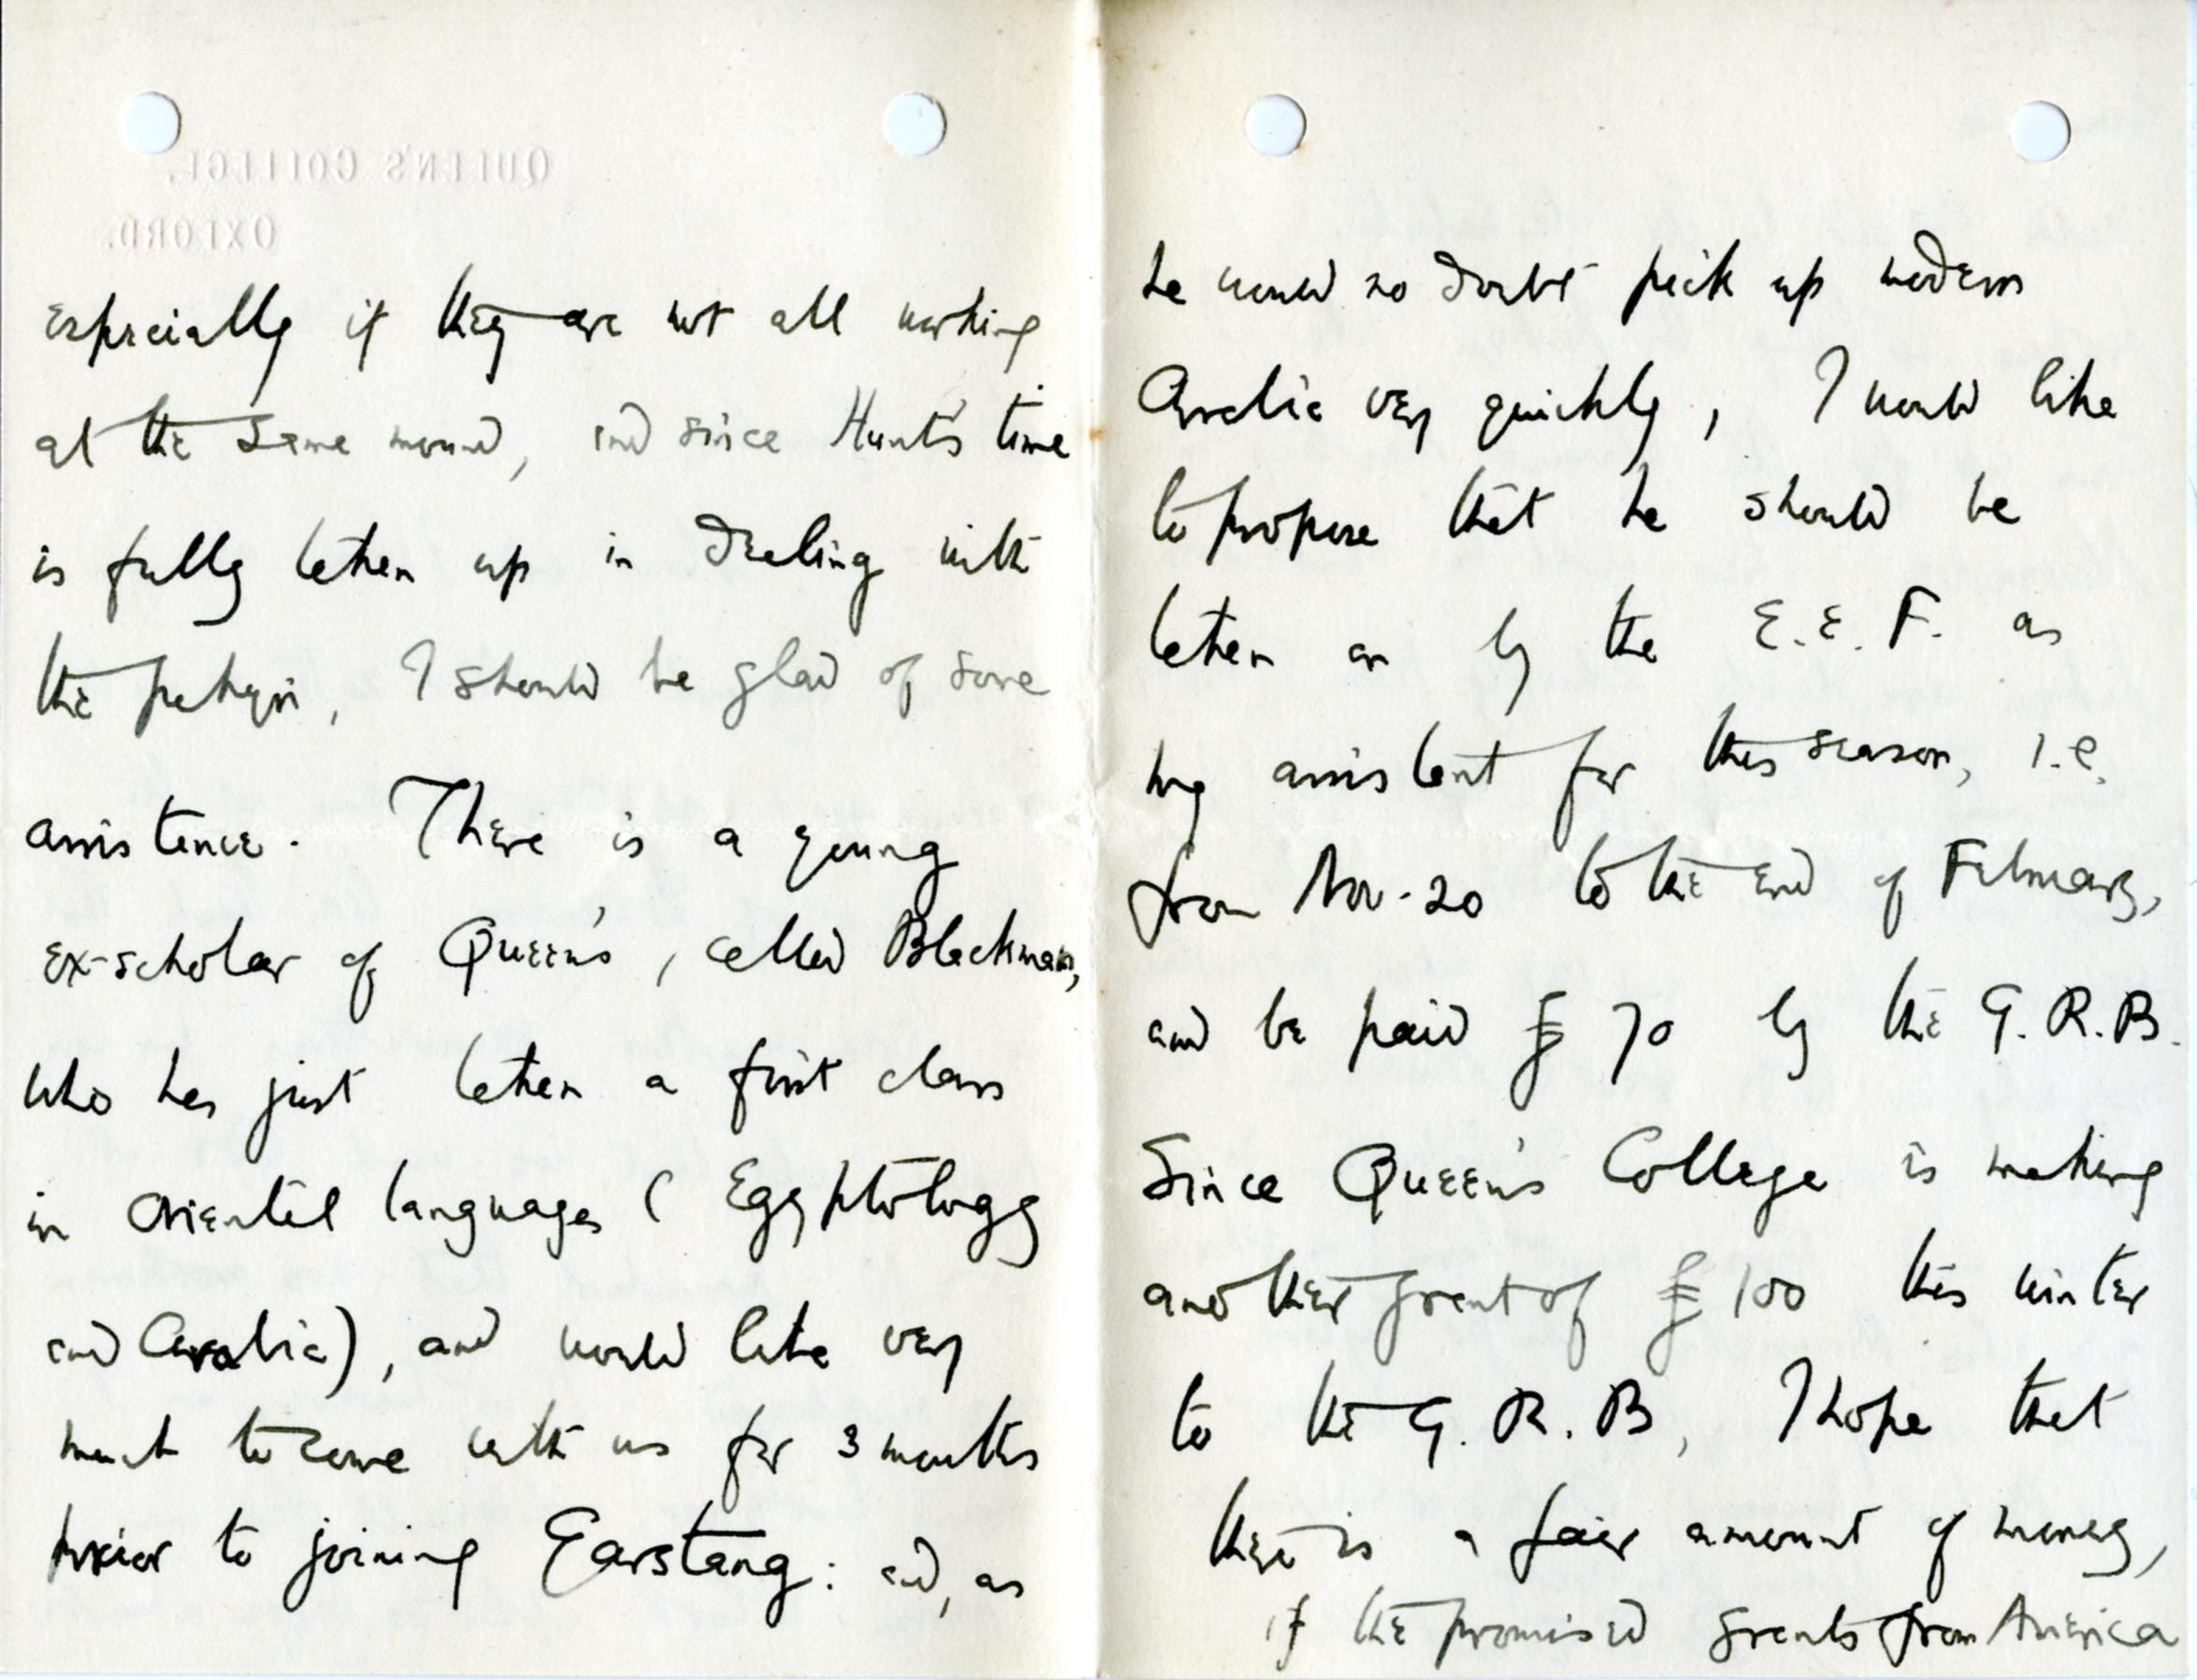 QUEEN'S COLLEGE,
OXFORD.
especially if they are not all working
at the same mound, and since Hunt's time
is fully taken up in dealing with
the papyri, I should be glad of some
assistance. There is a young
ex-scholar of Queen's, called Blackman,
who has just taken a first class
in oriental languages (Egyptology
and Arabic), and would like very
much to come with us for 3 months
prior to joining Garstang: and, as
he would no doubt pick up modern
Arabic very quickly, I would like
to propose that he should be
taken on by the E.E.F. as
my assistant for this season, i.e.
from Nov. 20 to the end of February,
and be paid £70 by the G.R.B.
Since Queen's College is making
another grant of £100 this winter
to the G.R.B, I hope that
there is a fair amount of money,
if the promised grants from America